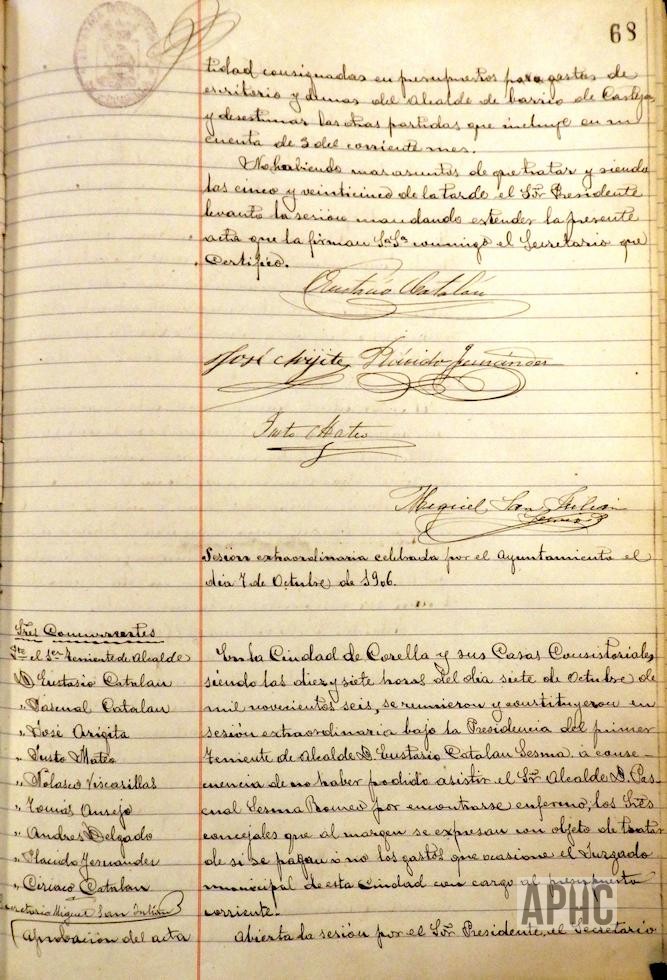 68
tidad consignadas en presupuestos para gastos de
escritorio y demas del Alcalde de barrio de Castejon
y desestimar las otras partidas que incluye en su
cuenta de 3 del corriente mes.
No habiendo mas asuntos de que tratar y siendo
las cinco y veinticinco de la tarde el Sor Presidente
levanto la sesion mandando estender la presente
acta que la firman Sas Sas conmigo el Secretario que
Certifico.
Eustasio Catalán
José Arigita Plácido Jernández
Justo Mateo
Miguel San Julián
Sesion extraordinaria celebrada por el Ayuntamiento el
dia 7 de Octubre de 1906.
Sres Concurrentes
Pte el 1er Teniente de Alcalde
D. Eustasio Catalan
" Pascual Catalan
" José Arigita
" Justo Mateo
" Nolasco Viscasillas
" Tomás Ausejo
" Andres Delgado
" Placido Jernandez
" Ciriaco Catalan
Secretario Miguel San Julián
Aprobacion del acta
En la Ciudad de Corella y sus Casas Consistoriales
siendo las diez y siete horas del dia siete de Octubre de
mil novecientos seis, se reunieron y constituyeron en
sesion extraordinaria bajo la Presidencia del primer
Teniente de Alcalde D. Eustasio Catalan Sesma á conse-
cuencia de no haber podido asistir el Sr Alcalde D. Pas-
cual Sesma Romeo por encontrarse enfermo, los Sres
concejales que al margen se expresan con objeto de tratar
de si se pagan ó no los gastos que ocasione el Juzgado
municipal de esta Ciudad con cargo al presupuesto
corriente.
Abierta la sesion por el Sor Presidente, el Secretario
APHC